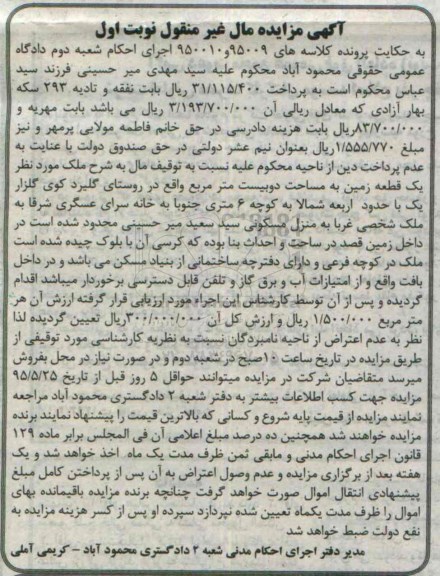 آگهی مزایده مال غیر منقول نوبت اول
به حکایت پرونده کلاسه های ۹۵۰۰۹و۹۵۰۰۱۰ اجرای احکام شعبه دوم دادگاه
عمومی حقوقی محمود آباد محکوم علیه سید مهدی میر حسینی فرزند سید
عباس محکوم است به پرداخت ۳۱/۱۱۵/۴۰۰ ریال بابت نفقه و تادیه ۲۹۳ سکه
بهار آزادی که معادل ریالی آن ۳/۱۹۳/۷۰۰/۰۰۰ ریال می باشد بابت مهریه و
۸۳/۷۰۰/۰۰۰ریال بابت هزینه دادرسی در حق خانم فاطمه مولایی پرمهر و نیز
مبلغ ۱/۵۵۵/۷۷۰ریال بعنوان نیم عشر دولتی در حق صندوق دولت با عنایت به
عدم پرداخت دین از ناحیه محکوم علیه نسبت به توقیف مال به شرح ملک مورد نظر
یک قطعه زمین به مساحت دویست متر مربع واقع در روستای گلیرد کوی گلزار
یک با حدود اربعه شمالا به کوچه ۶ متری جنوبا به خانه سرای عسگری شرقا به
ملک شخصی غربا به منزل مسکونی سید سعید میر حسینی محدود شده است در
داخل زمین قصد در ساخت و احداث بنا بوده که کرسی آن با بلوک چیده شده است
ملک در کوچه فرعی و دارای دفترچه ساختمانی از بنیاد مسکن می باشد و در داخل
بافت واقع و از امتیازات آب و برق گاز و تلفن قابل دسترسی برخوردار میباشد اقدام
گردیده و پس از آن توسط کارشناس این اجراء مورد ارزیابی قرار گرفته ارزش آن هر
متر مربع ۱/۵۰۰/۰۰۰ ریال و ارزش کل آن ۳۰۰/۰۰۰/۰۰۰ریال تعیین گردیده لذا
نظر به عدم اعتراض از ناحیه نامبردگان نسبت به نظریه کارشناسی مورد توقیفی از
طریق مزایده در تاریخ ساعت ۱۰صبح در شعبه دوم و در صورت نیاز در محل بفروش
میرسد متقاضیان شرکت در مزایده میتوانند حواقل ۵ روز قبل از تاریخ ۹۵/۵/۲۵
مزایده جهت کسب اطلاعات بیشتر به دفتر شعبه ۲ دادگستری محمود آباد مراجعه
نمایند مزایده از قیمت پایه شروع و کسانی که بالاترین قیمت را پیشنهاد نمایند برنده
مزایده خواهند شد همچنین ده درصد مبلغ اعلامی آن فی المجلس برابر ماده ۱۲۹
قانون اجرای احکام مدنی و مابقی ثمن ظرف مدت یک ماه اخذ خواهد شد و یک
هفته بعد از برگزاری مزایده و عدم وصول اعتراض به آن پس از پرداختن کامل مبلغ
پیشنهادی انتقال اموال صورت خواهد گرفت چنانچه برنده مزایده باقیمانده بهای
اموال را ظرف مدت یکماه تعیین شده نپردازد سپرده او پس از کسر هزینه مزایده به
نفع دولت ضبط خواهد شد
مدیر دفتر اجرای احکام مدنی شعبه ۲ دادگستری محمود آباد - کریمی آملی